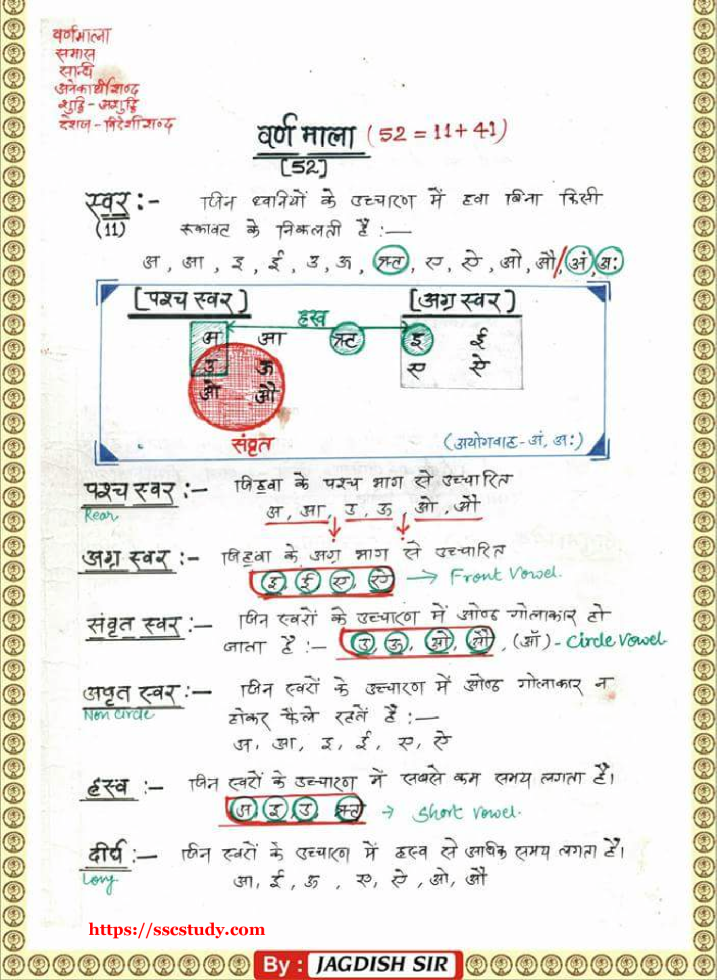 वर्णमाला
समास
सन्धि
अनेकार्थी शब्द
शुद्धि - अशुद्धि
देशज - विदेशी शब्द
वर्ण माला (52 = 11 + 41)
[52]
स्वर :- जिन ध्वनियों के उच्चारण में हवा बिना किसी
(11) रूकावट के निकलती है :—
अ, आ, इ, ई, उ, ऊ, ऋ, ए, ऐ, ओ, औ / अं, अः
[पश्च स्वर] [अग्र स्वर]
ह्रस्व
अ आ ऋ इ ई
उ ऊ ए ऐ
ओ औ
संवृत (अयोगवाह - अं, अः)
पश्च स्वर :- जिहवा के पश्च भाग से उच्चारित
Rear अ, आ, उ, ऊ, ओ, औ
अग्र स्वर :- जिहवा के अग्र भाग से उच्चारित
इ, ई, ए, ऐ → Front Vowel.
संवृत स्वर :- जिन स्वरों के उच्चारण में ओष्ठ गोलाकार हो
जाता है :- उ, ऊ, ओ, औ, (ऑ) - Circle Vowel
अवृत स्वर :— जिन स्वरों के उच्चारण में ओष्ठ गोलाकार न
Non circle होकर फैले रहतें है :—
अ, आ, इ, ई, ए, ऐ
हस्व :— जिन स्वरों के उच्चारण में सबसे कम समय लगता है।
अ, इ, उ, ऋ → Short Vowel.
दीर्घ :— जिन स्वरों के उच्चारण में हस्व से अधिक समय लगता है।
Long आ, ई, ऊ, ए, ऐ, ओ, औ
https://sscstudy.com
By : JAGDISH SIR